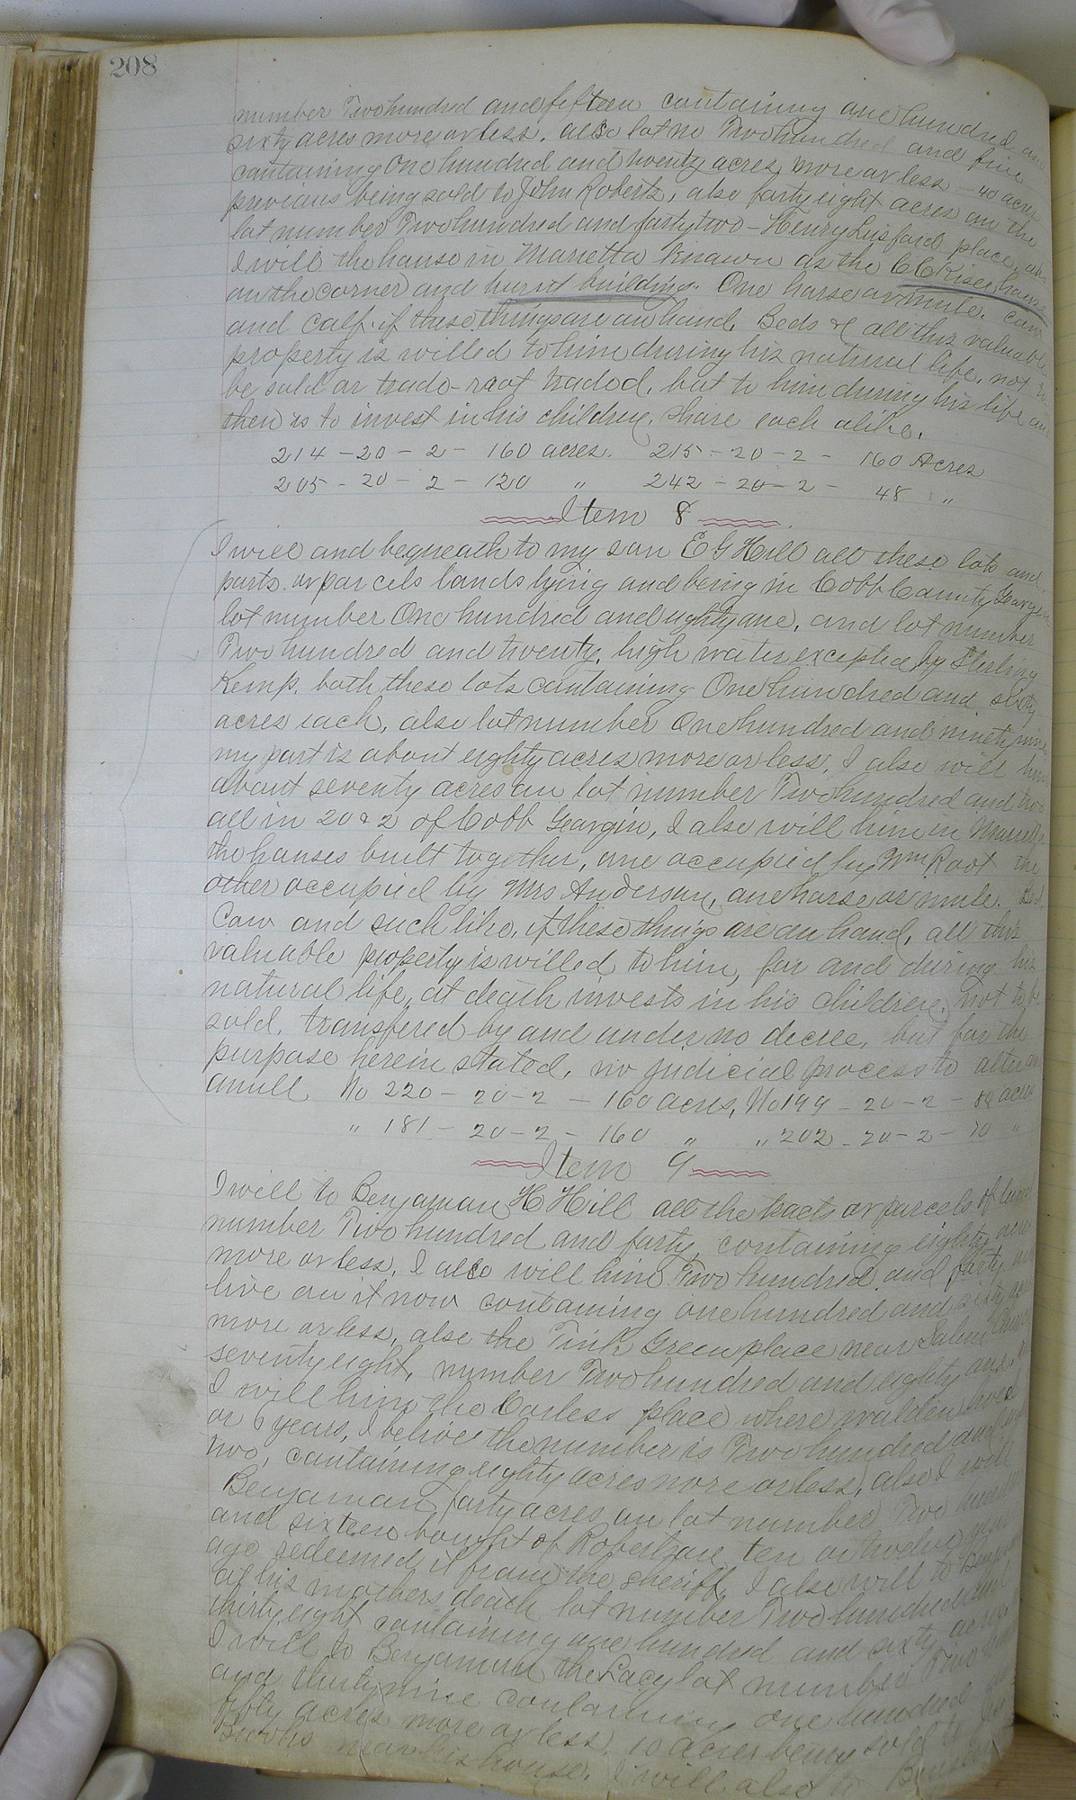 208
number Two hundred and fifteen containing one hundred and
sixty acres more or less. also lot no Two hundred and five
containing One hundred and twenty acres, more or less - 40 acres
previous being sold to John Roberts, also forty eight acres on the
lot number Two hundred and forty two - Henry Lusford place, also
I will the house in Marietta known as the C C Riser house
on the corner and burnt building. One horse or mule. cow
and calf. if these things are on hand. Beds &c all this valuable
property is willed to him during his natural life, not to
be sold or trade - root traded, but to him during his life and
then is to invest in his children. Share each alike.
214 - 20 - 2 - 160 acres. 215 - 20 - 2 - 160 Acres
205 - 20 - 2 - 120 " 242 - 20 - 2 - 48 "
Item 8
I will and bequeath to my son E G Hill all these lots and
parts or parcels lands lying and being in Cobb County Georgia
lot number One hundred and eighty one, and lot number
Two hundred and twenty, high water excepted by Sterling
Kemp. both these lots containing One hundred and sixty
acres each, also lot number One hundred and ninety nine
my part is about eighty acres more or less, I also will him
about seventy acres on lot number Two hundred and two
all in 20 & 2 of Cobb Georgia, I also will him in Marietta
the houses built together, one occupied by Wm Root the
other occupied by Mrs Anderson, one horse or mule. Bed,
Cow and such like, if these things are on hand, all this
valuable property is willed to him, for and during his
natural life, at death invests in his children, not to be
sold, transfered by and under no decree, but for the
purpose herein stated, no judicial process to alter or
anull No 220 - 20 - 2 - 160 acres, No 199 - 20 - 2 - 80 acres
" 181 - 20 - 2 - 160 " " 202 - 20 - 2 - 70 "
Item 9
I will to Benjaman H Hill all the tracts or parcels of land
number Two hundred and forty, containing eighty acres
more or less, I also will him Two hundred and forty one
live on it now containing one hundred and sixty acres
more or less, also the Tink Green place near Salem Church
seventy eight, number Two hundred and eighty
I will him the Corless place where walden lived
or 6 years, I believe the number is Two hundred and
two, containing eighty acres more or less, also I will
Benjaman forty acres on lot number Two hundred
and sixteen bought of Robert ten or twelve years
ago redeemed it from the sheriff, I also will to Benjaman
at his mothers death lot number Two hundred and
thirty eight containing one hundred and sixty acres
I will to Benjaman the Lacy lot number Two hundred
and thirty nine containing one hundred and
fifty acres more or less. 10 acres being sold to
Brooks near his house. I will also to